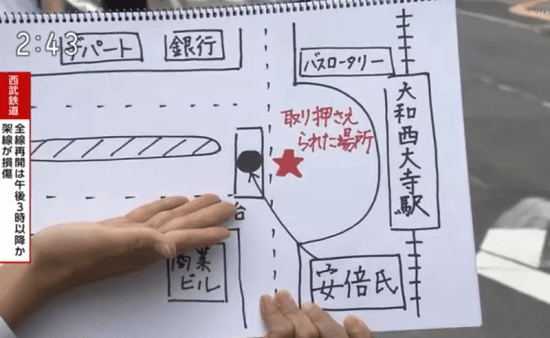 2:43
西武鉄道
全線再開は午後3時以降か
架線が損傷
デパート
銀行
バスロータリー
大和西大寺駅
取り押さえ
られた場所
台
商業
ビル
安倍氏